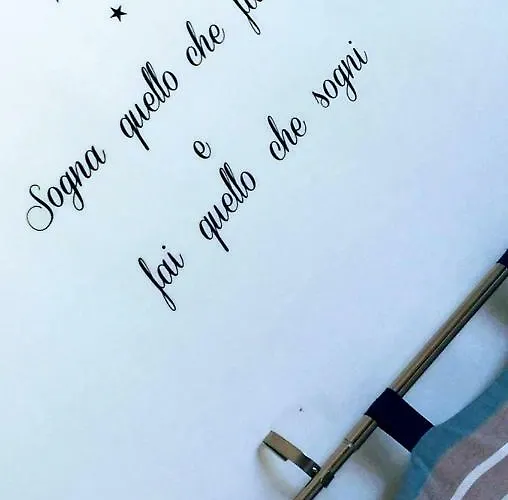 Sogna quello che
e
fai quello che sogni